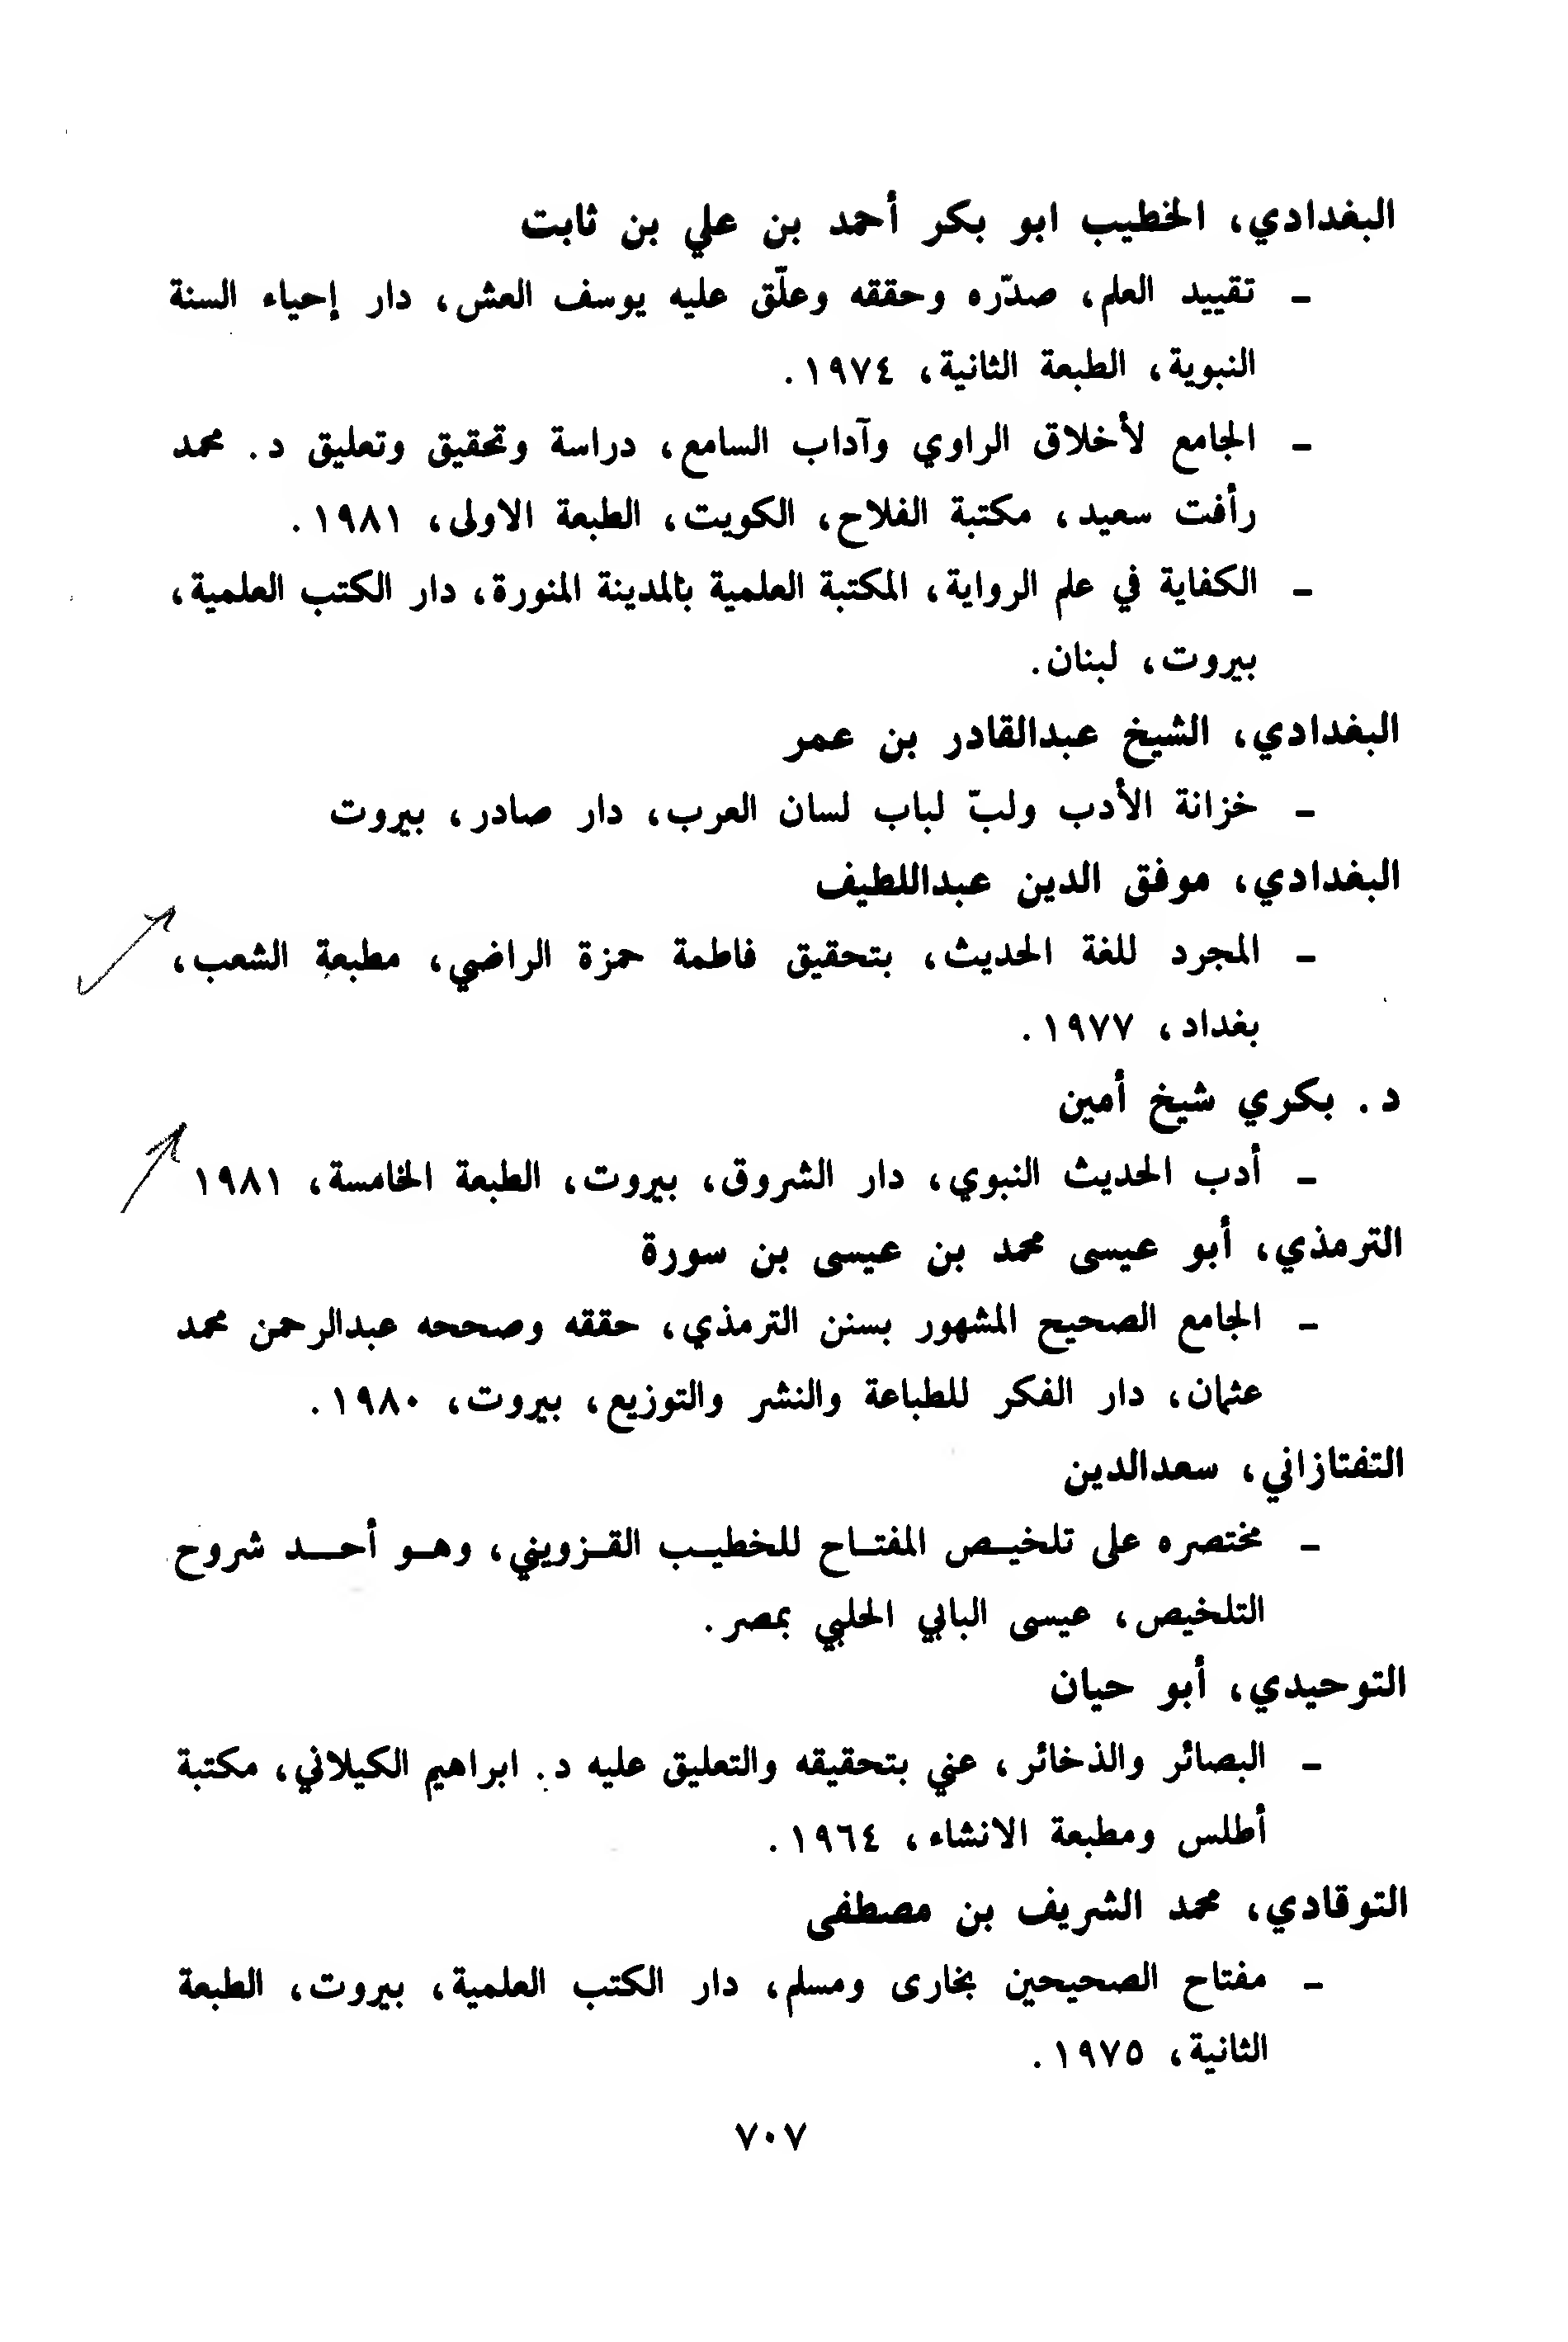 البغدادي، الخطيب ابو بكر أحمد بن علي بن ثابت
ـ تقييد العلم، صدّره وحققه وعلّق عليه يوسف العش، دار إحياء السنة
النبوية، الطبعة الثانية، ١٩٧٤.
ـ الجامع لأخلاق الراوي وآداب السامع، دراسة وتحقيق وتعليق د. محمد
رأفت سعيد، مكتبة الفلاح، الكويت، الطبعة الاولى، ١٩٨١.
ـ الكفاية في علم الرواية، المكتبة العلمية بالمدينة المنورة، دار الكتب العلمية،
بيروت، لبنان.
البغدادي، الشيخ عبدالقادر بن عمر
ـ خزانة الأدب ولبّ لباب لسان العرب، دار صادر، بيروت
البغدادي، موفق الدين عبداللطيف
ـ المجرد للغة الحديث، بتحقيق فاطمة حمزة الراضي، مطبعة الشعب،
بغداد، ١٩٧٧.
د. بكري شيخ أمين
ـ أدب الحديث النبوي، دار الشروق، بيروت، الطبعة الخامسة، ١٩٨١
الترمذي، أبو عيسى محمد بن عيسى بن سورة
ـ الجامع الصحيح المشهور بسنن الترمذي، حققه وصححه عبدالرحمن محمد
عثمان، دار الفكر للطباعة والنشر والتوزيع، بيروت، ١٩٨٠.
التفتازاني، سعدالدين
ـ مختصره على تلخيـص المفتـاح للخطيـب القـزويني، وهـو أحـد شروح
التلخيص، عيسى البابي الحلبي بمصر.
التوحيدي، أبو حيان
ـ البصائر والذخائر، عني بتحقيقه والتعليق عليه د. ابراهيم الكيلاني، مكتبة
أطلس ومطبعة الانشاء، ١٩٦٤.
التوقادي، محمد الشريف بن مصطفى
ـ مفتاح الصحيحين بخارى ومسلم، دار الكتب العلمية، بيروت، الطبعة
الثانية، ١٩٧٥.
٧٠٧